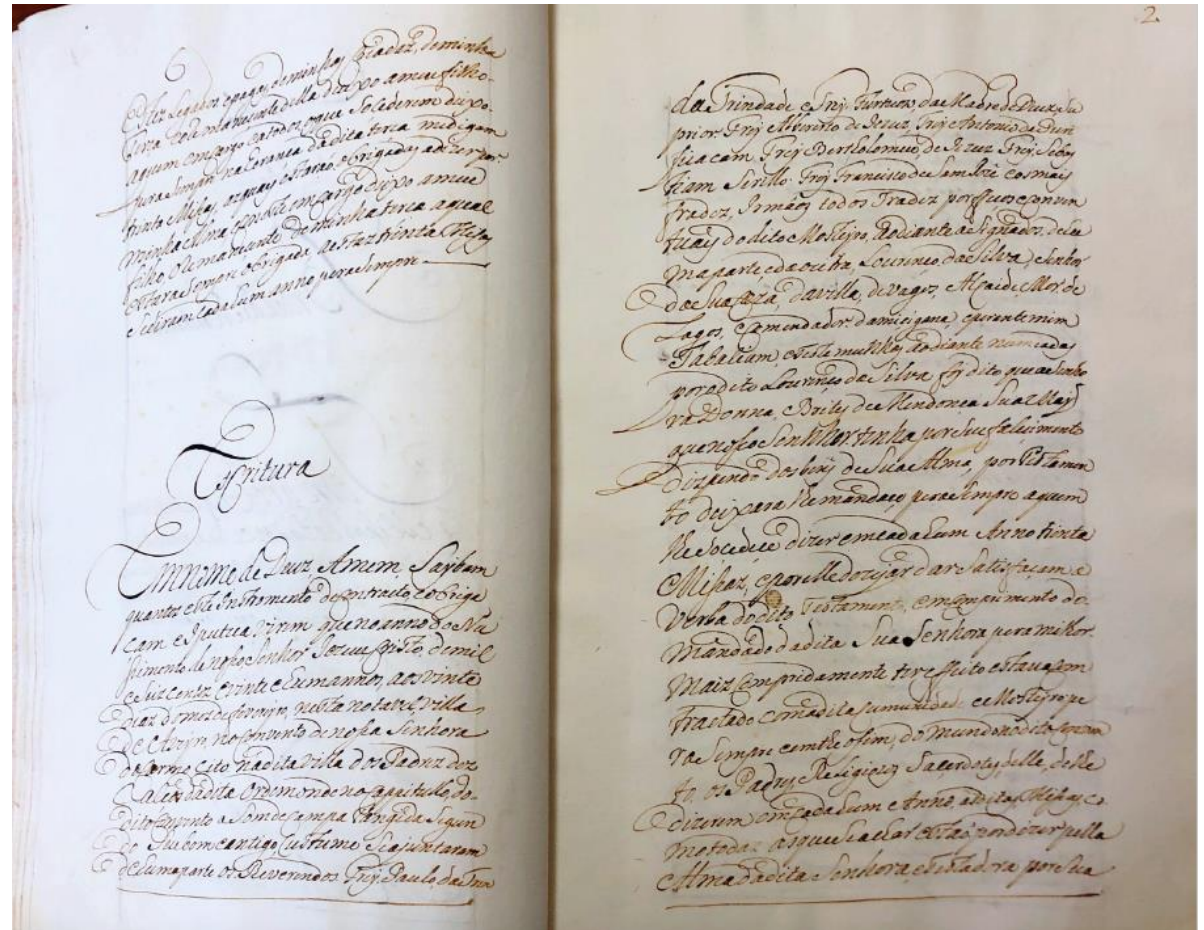 Estez legados e pagas de minhas Criadaz, de minha
terça, e o remanecente della deixo a meu filho
a quem em cargo e a todos os que socederem deixo
pura sempre na Eranca da dita terca me digam
trinta Missas, as quays estarão obrigadas a dizer por
minha Alma e por este emcargo deixo a meu
filho, o remanecente de minha terca a qual
estara sempre obrigada a estaz trinta Missas
e se diram cada hum anno pera sempre
Escritura
Em Nome de Deuz Amem. Saybam
quantoz este Instromento de contracto, e obriga
cam e Iputeca virem que no anno do Na
simento de nosso Senhor Jezus Cristo, de mil
e seiz centoz e vinte e hum annos, aos vinte
diaz do mez de , nesta notavel villa
de Aveyro, no convento de nossa Senhora
do Carmo, cito na dita villa dos Padrez dos
calcos da dita Ordem onde no capitullo, do
dito Convento a som de campa tangida segun
do seu bom e antigo custume se ajuntaram
de huma parte os Reverendos Frey Paulo, da Trin
2
da Trindade e Frey da Madre de Deuz, Su
prior Frey Alberto de Jezuz, Frey Antonio da
cam. Frey Bertholomeu de Jezuz Frey Sebas
tiam Sirillo. Frey Francisco de Sam Joze e os mais
fradez, Irmãos todos Fradez porfeços e conven
tuais do dito Mosteyro, ao diante asignados. de hu
ma parte, e da outra, Lourenco da Silva, Senhor
da Sua caza, da villa, de vagos, Alcaide Mor de
Lagos, Comendador da , e perante mim
Tabaliam, e testemunhas ao diante numeadas
por o dito Lourenco da Silva, foy dito que a Senho
ra Donna, Britis de Mendonca Sua May
que nosso Senhor tinha por seu falesimento
dizpondo dos beins de Sua Alma, por Testamen
to deixara lhe mandaço pera sempre a quem
lhe socedece dizer em cada hum Anno trinta
Missaz, e por elle dezejar dar satisfaçam a
Verba do dito Testamento, em comprimento do
Mandado da dita Sua Senhora pera milhor
Mais compridamente ter effeito estava com
tractado com a dita comunidade e Mosteyro pe
ra sempre emthe o fim, do mundo no dito conven
to, os Padres Religiozos Sacerdotes, delle,
dizerem em cada hum Anno, as ditas Missas co
mo todaz as que se achar estão por dizer pella
Alma da dita Senhora, e testadora por sua